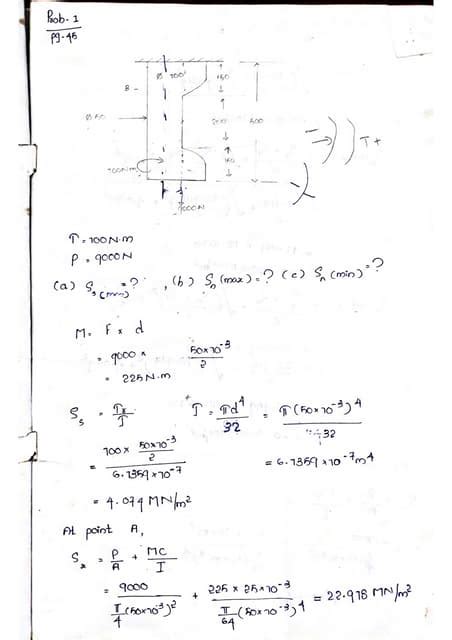 Prob. 1
pg. 45
Ø 100
150
B
Ø 50
200
400
T+
150
100N.m
9000N
T = 100 N.m
P = 9000N
(a) Ss(max) = ? , (b) Sn (max) = ? (c) Sn (min) = ?
M = F x d
= 9000 x 50x10⁻³/2
= 225 N.m
Ss = Tr/J J = πd⁴/32 = π(50x10⁻³)⁴/32
= 100 x 50x10⁻³/2 / 6.1359x10⁻⁷ = 6.1359 x10⁻⁷ m⁴
= 4.074 MN/m²
At point A,
Sx = P/A + MC/I
= 9000 / π/4 (50x10⁻³)² + 225 x 25x10⁻³ / π/64 (50x10⁻³)⁴ = 22.918 MN/m²